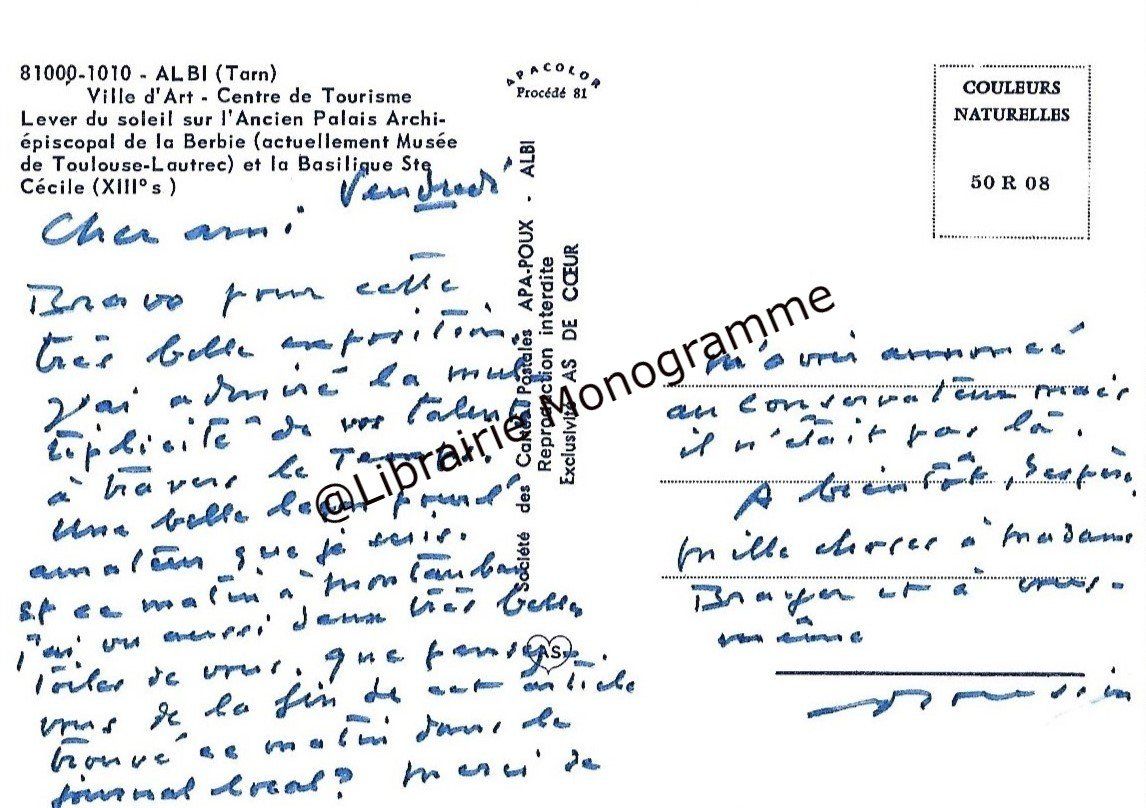 81000-1010 - ALBI (Tarn)
Ville d'Art - Centre de Tourisme
Lever du soleil sur l'Ancien Palais Archi-
épiscopal de la Berbie (actuellement Musée
de Toulouse-Lautrec) et la Basilique Ste
Cécile (XIII° s)
Vendredi
Cher ami
Bravo pour cette
très belle exposition.
J'ai admiré la mul
tiplicité de vos talents
à travers le Temps.
Une belle leçon pour l'
amateur que je suis.
Et ce matin à Montauban
j'ai vu aussi deux très belles
toiles de vous. Que pensez-
vous de la fin de cet article
trouvé ce matin dans le
journal local? Merci de
APACOLOR
Procédé 81
Société des Cartes Postales APA-POUX - ALBI
Reproduction interdite
Exclusivité AS DE CŒUR
AS
COULEURS
NATURELLES
50 R 08
m'avoir annoncé
au conservateur mais
il n'était pas là.
A bientôt, j'espère,
mille choses à Madame
Brayer et à vous-
même
@Librairie Monogramme